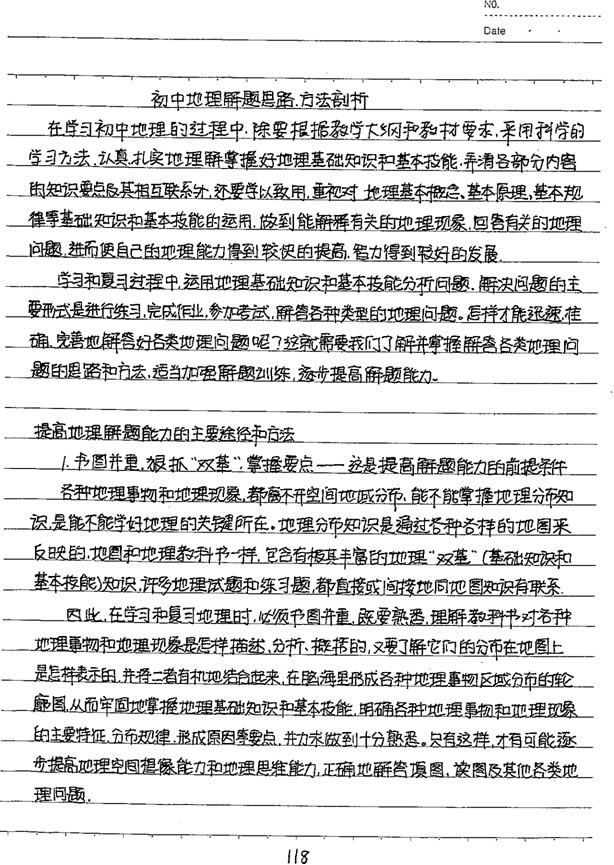 No.
Date
初中地理解题思路、方法剖析
在学习初中地理的过程中,除要根据教学大纲和教材要求,采用科学的
学习方法、认真扎实地理解掌握好地理基础知识和基本技能,弄清各部分内容
的知识要点及其相互联系外,还要学以致用,重视对地理基本概念、基本原理、基本规
律等基础知识和基本技能的运用,做到能解释有关的地理现象,回答有关的地理
问题,进而使自己的地理能力得到较快的提高,智力得到较好的发展.
学习和复习过程中,运用地理基础知识和基本技能分析问题、解决问题的主
要形式是进行练习,完成作业,参加考试,解答各种类型的地理问题。怎样才能迅速、准
确、完善地解答好各类地理问题呢?这就需要我们了解并掌握解答各类地理问
题的思路和方法,适当加强解题训练,逐步提高解题能力。
提高地理解题能力的主要途径和方法
1.书图并重,狠抓“双基”,掌握要点——这是提高解题能力的前提条件
各种地理事物和地理现象,都离不开空间地域分布,能不能掌握地理分布知
识,是能不能学好地理的关键所在。地理分布知识是通过各种各样的地图来
反映的,地图和地理教科书一样,包含有极其丰富的地理“双基”(基础知识和
基本技能)知识,许多地理试题和练习题,都直接或间接地同地图知识有联系.
因此,在学习和复习地理时,必须书图并重,既要熟悉、理解教科书对各种
地理事物和地理现象是怎样描述、分析、概括的,又要了解它们的分布在地图上
是怎样表示的,并将二者有机地结合起来,在脑海里形成各种地理事物区域分布的轮
廓图,从而牢固地掌握地理基础知识和基本技能,明确各种地理事物和地理现象
的主要特征、分布规律、形成原因等要点,并力求做到十分熟悉。只有这样,才有可能逐
步提高地理空间想像能力和地理思维能力,正确地解答填图、读图及其他各类地
理问题.
118